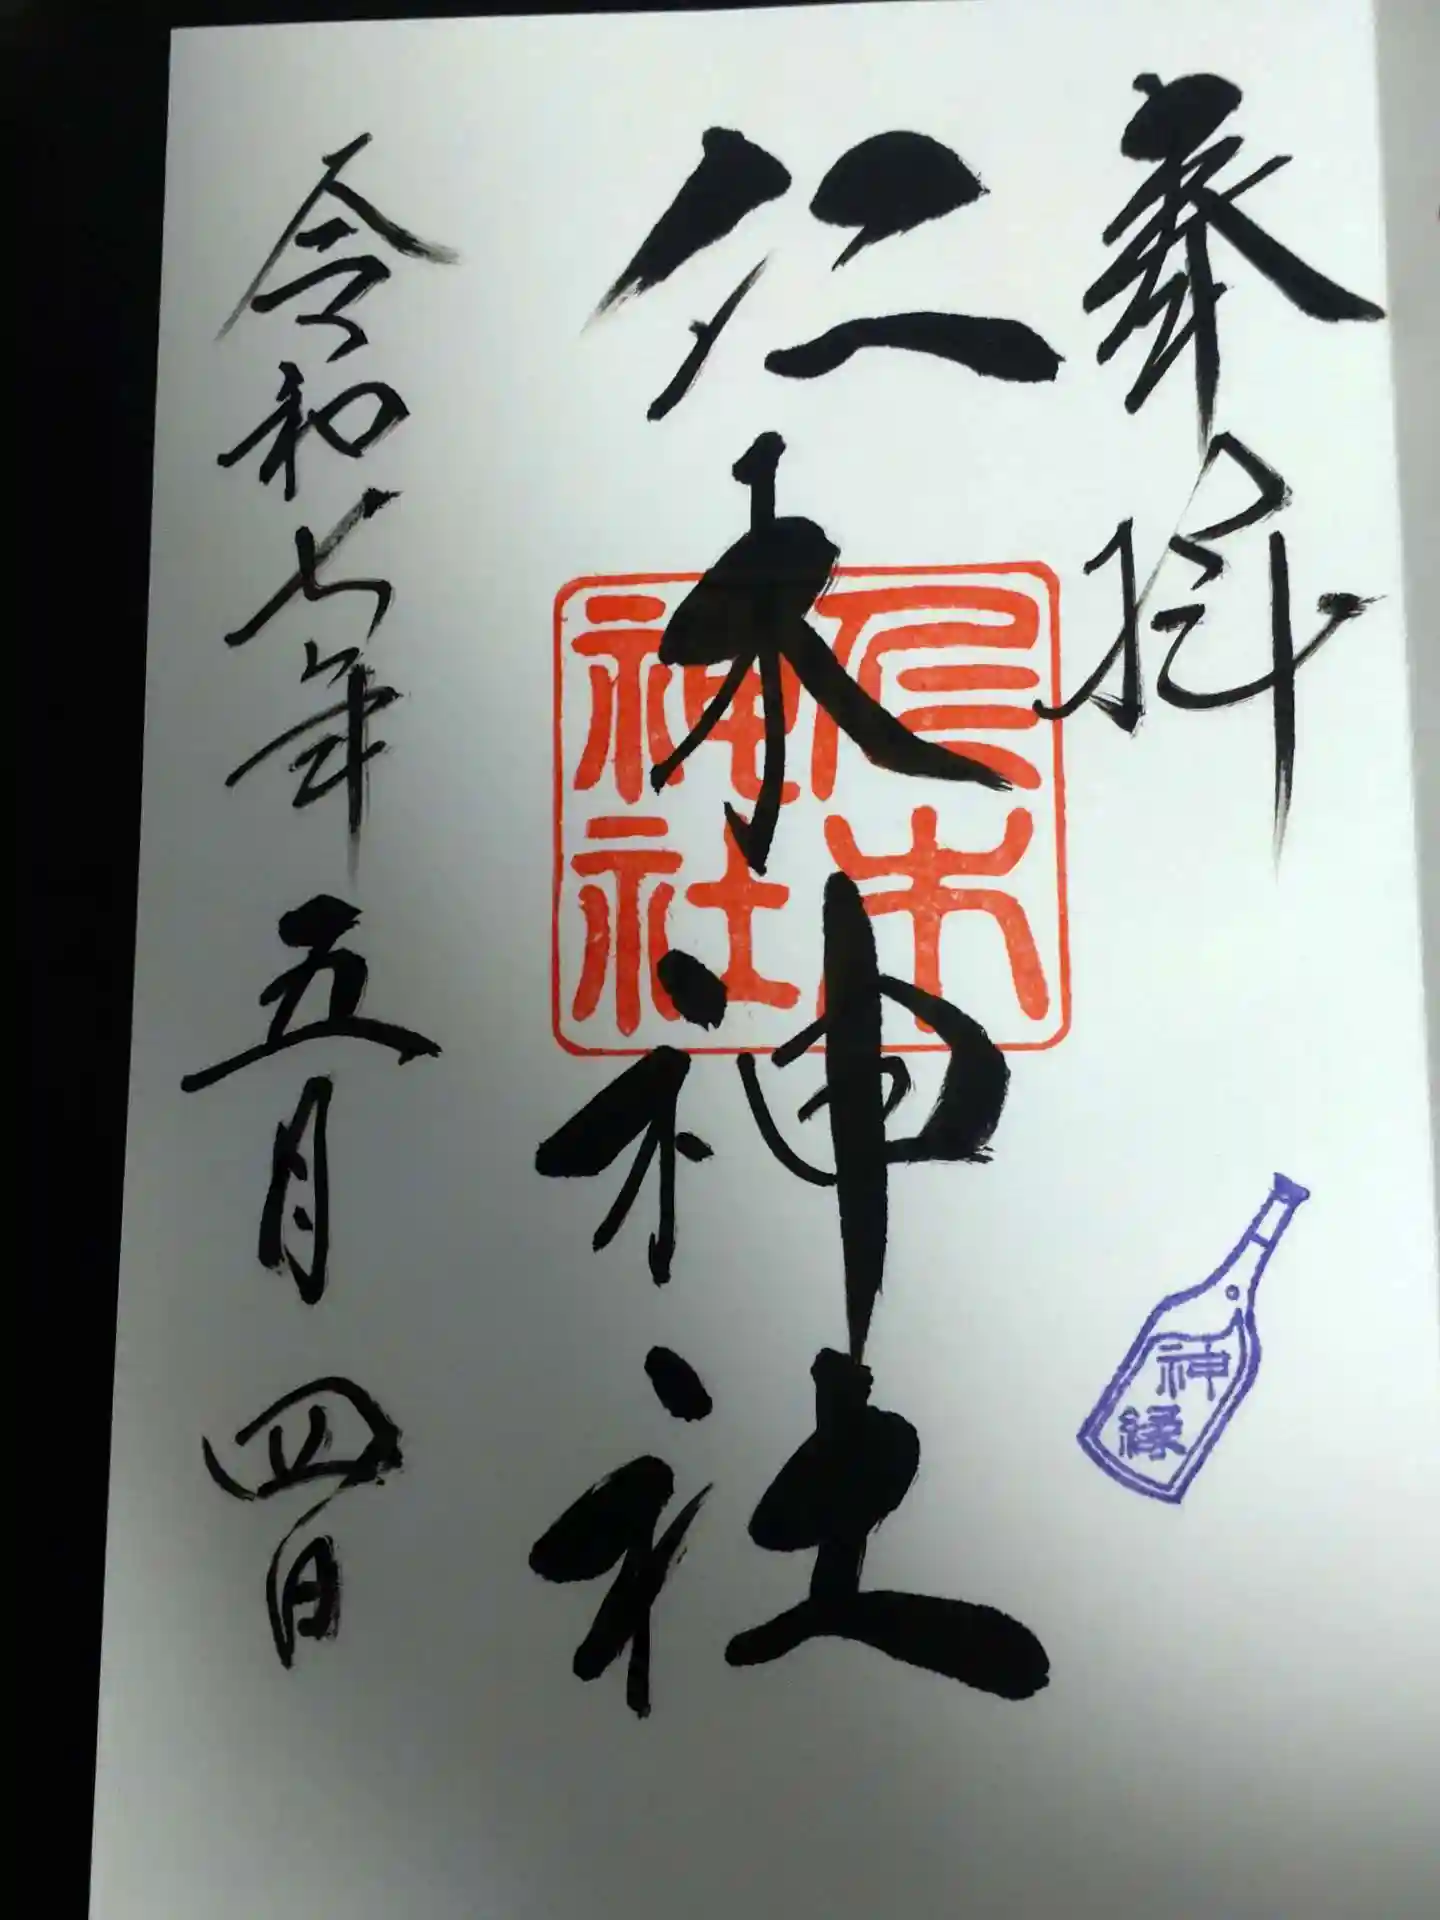 奉拝
仁木神社
仁木
神社
令和七年五月四日
神
縁